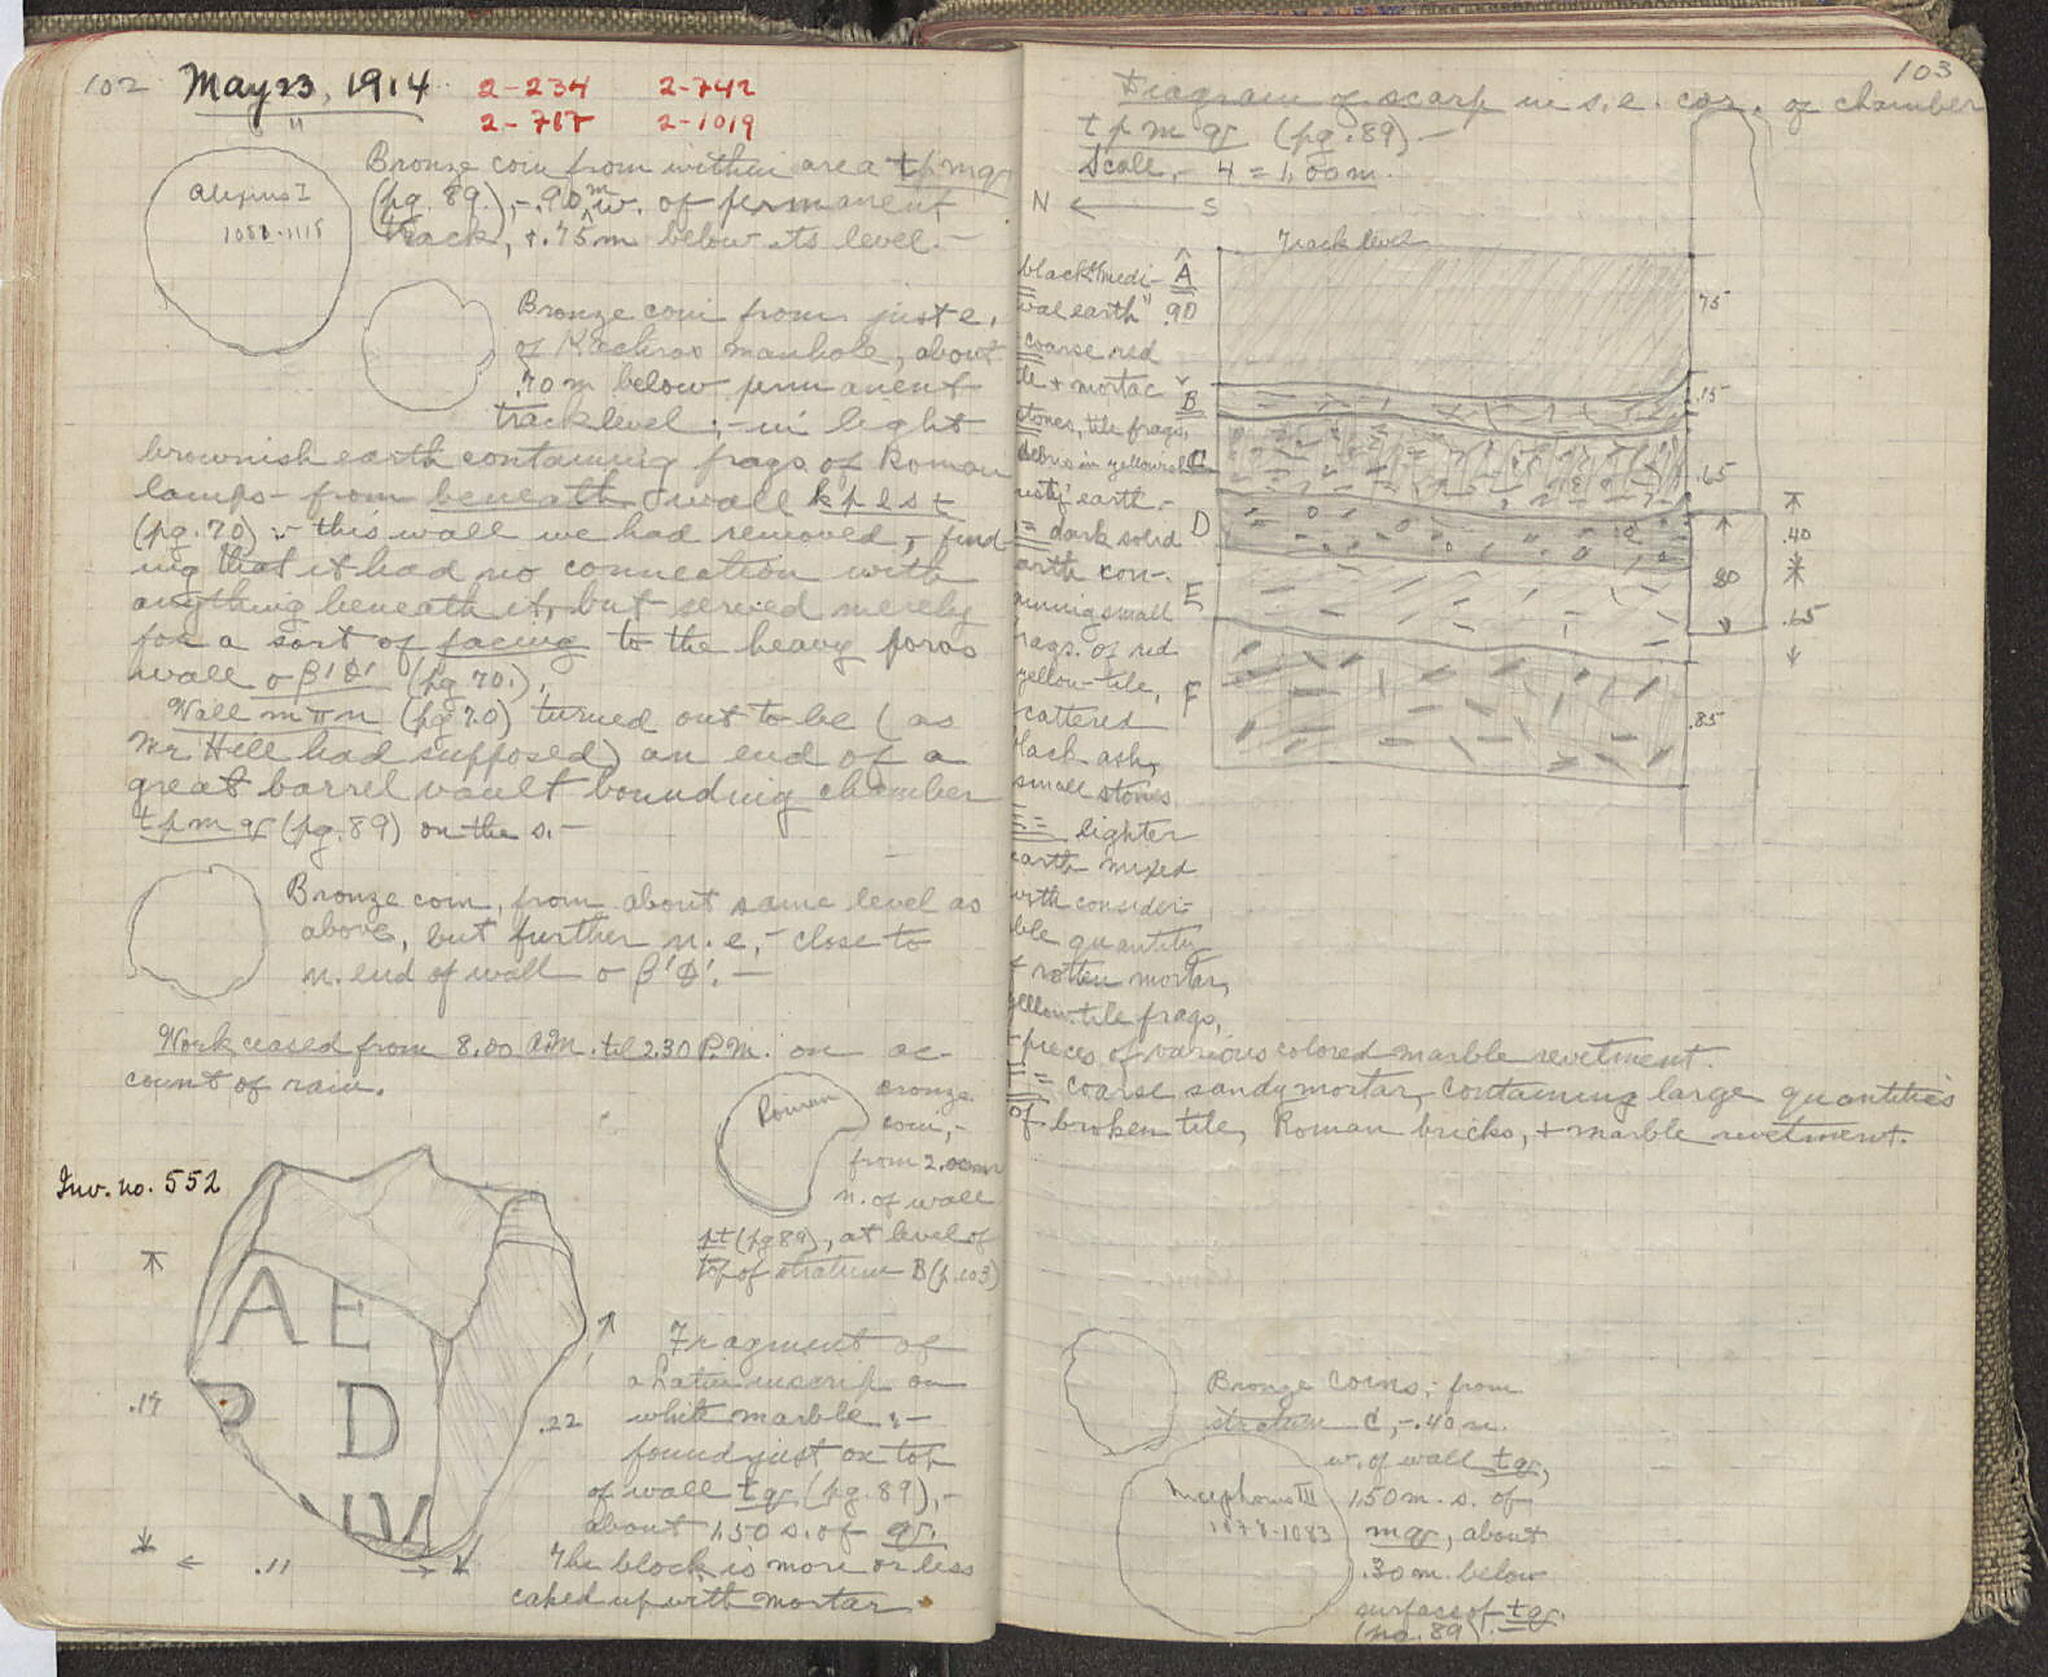 102 May 23, 1914 2-234 2-742
" 2-787 2-1019
Alexius I
1081-1118
Bronze coin from within area t p m q
(pg. 89), - .90 m w. of permanent
track, + .75 m below its level. -
Bronze coin from just e.
of Kachros manhole, about
.70 m below permanent
track level; - in light
brownish earth containing frags of Roman
lamps - from beneath wall k p l s t
(pg. 70) :- this wall we had removed, find
ing that it had no connection with
anything beneath it, but served merely
for a sort of facing to the heavy poros
wall σ β' φ' (pg 70.),
Wall m π n (pg 70) turned out to be (as
Mr Hill had supposed) an end of a
great barrel vault bounding chamber
t p m q (pg. 89) on the s. -
Bronze coin, from about same level as
above, but further n. e, - close to
n. end of wall σ β' φ'. -
Work ceased from 8.00 A.M. til 2.30 P.M. on ac-
count of rain.
Roman
Bronze
coin, -
from 2.00 m
n. of wall
pt (pg 89), at level of
top of stratum B (p. 103)
Inv. no. 552
A E
R D
.22
.11
Fragment of
a Latin inscrip on
white marble :-
found just on top
of wall t q (pg. 89), -
about 1.50 s. of q.
The block is more or less
caked up with mortar.
103
Diagram of scarp in s. e. cor. of chamber
t p m q (pg. 89). -
Scale, - 4 = 1.00 m.
N S
Track level
black "medi- A
val earth" .90
coarse red
tile + mortar B
stones, tile frags,
debris in yellowish C
earth. -
= dark solid D
earth con-
taining small E
frags. of red
yellow tile, F
scattered
black ash,
small stones
E = lighter
earth mixed
with consider-
ble quantity
f rotten mortar,
yellow tile frags,
.75
.15
.65
.40
.80
.65
.85
+ pieces of various colored marble revetment.
F = coarse sandy mortar, containing large quantities
of broken tile, Roman bricks, + marble revetment.
Bronze coins, - from
stratum C, - .40 m.
w. of wall t q,
Nicephorus III 1.50 m. s. of
1078-1083 m q, about
.30 m. below
surface of t q.
(pg. 89). -